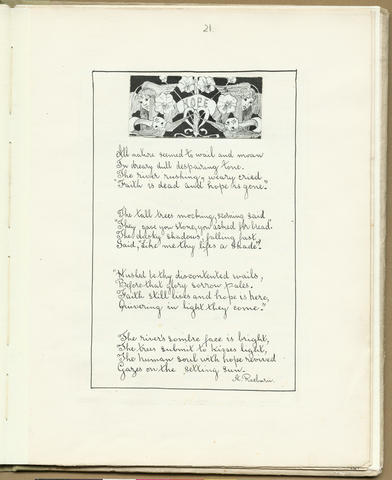 21.
HOPE
All nature seemed to wail and moan
In dreary dull despairing tone.
The river rushing, weary cried
"Faith is dead and hope is gone."
The tall trees mocking, seeming said
"They gave you stone, you asked for bread"
The dusky shadows, falling fast
Said, "Like me thy life's a shade".
"Hushed be thy discontented wails,
Before that glory sorrow pales.
Faith still lives and hope is here,
Quivering in light they come."
The river's sombre face is bright,
The trees submit to kisses light,
The human soul with hope revived
Gazes on the setting sun.
Raeburn